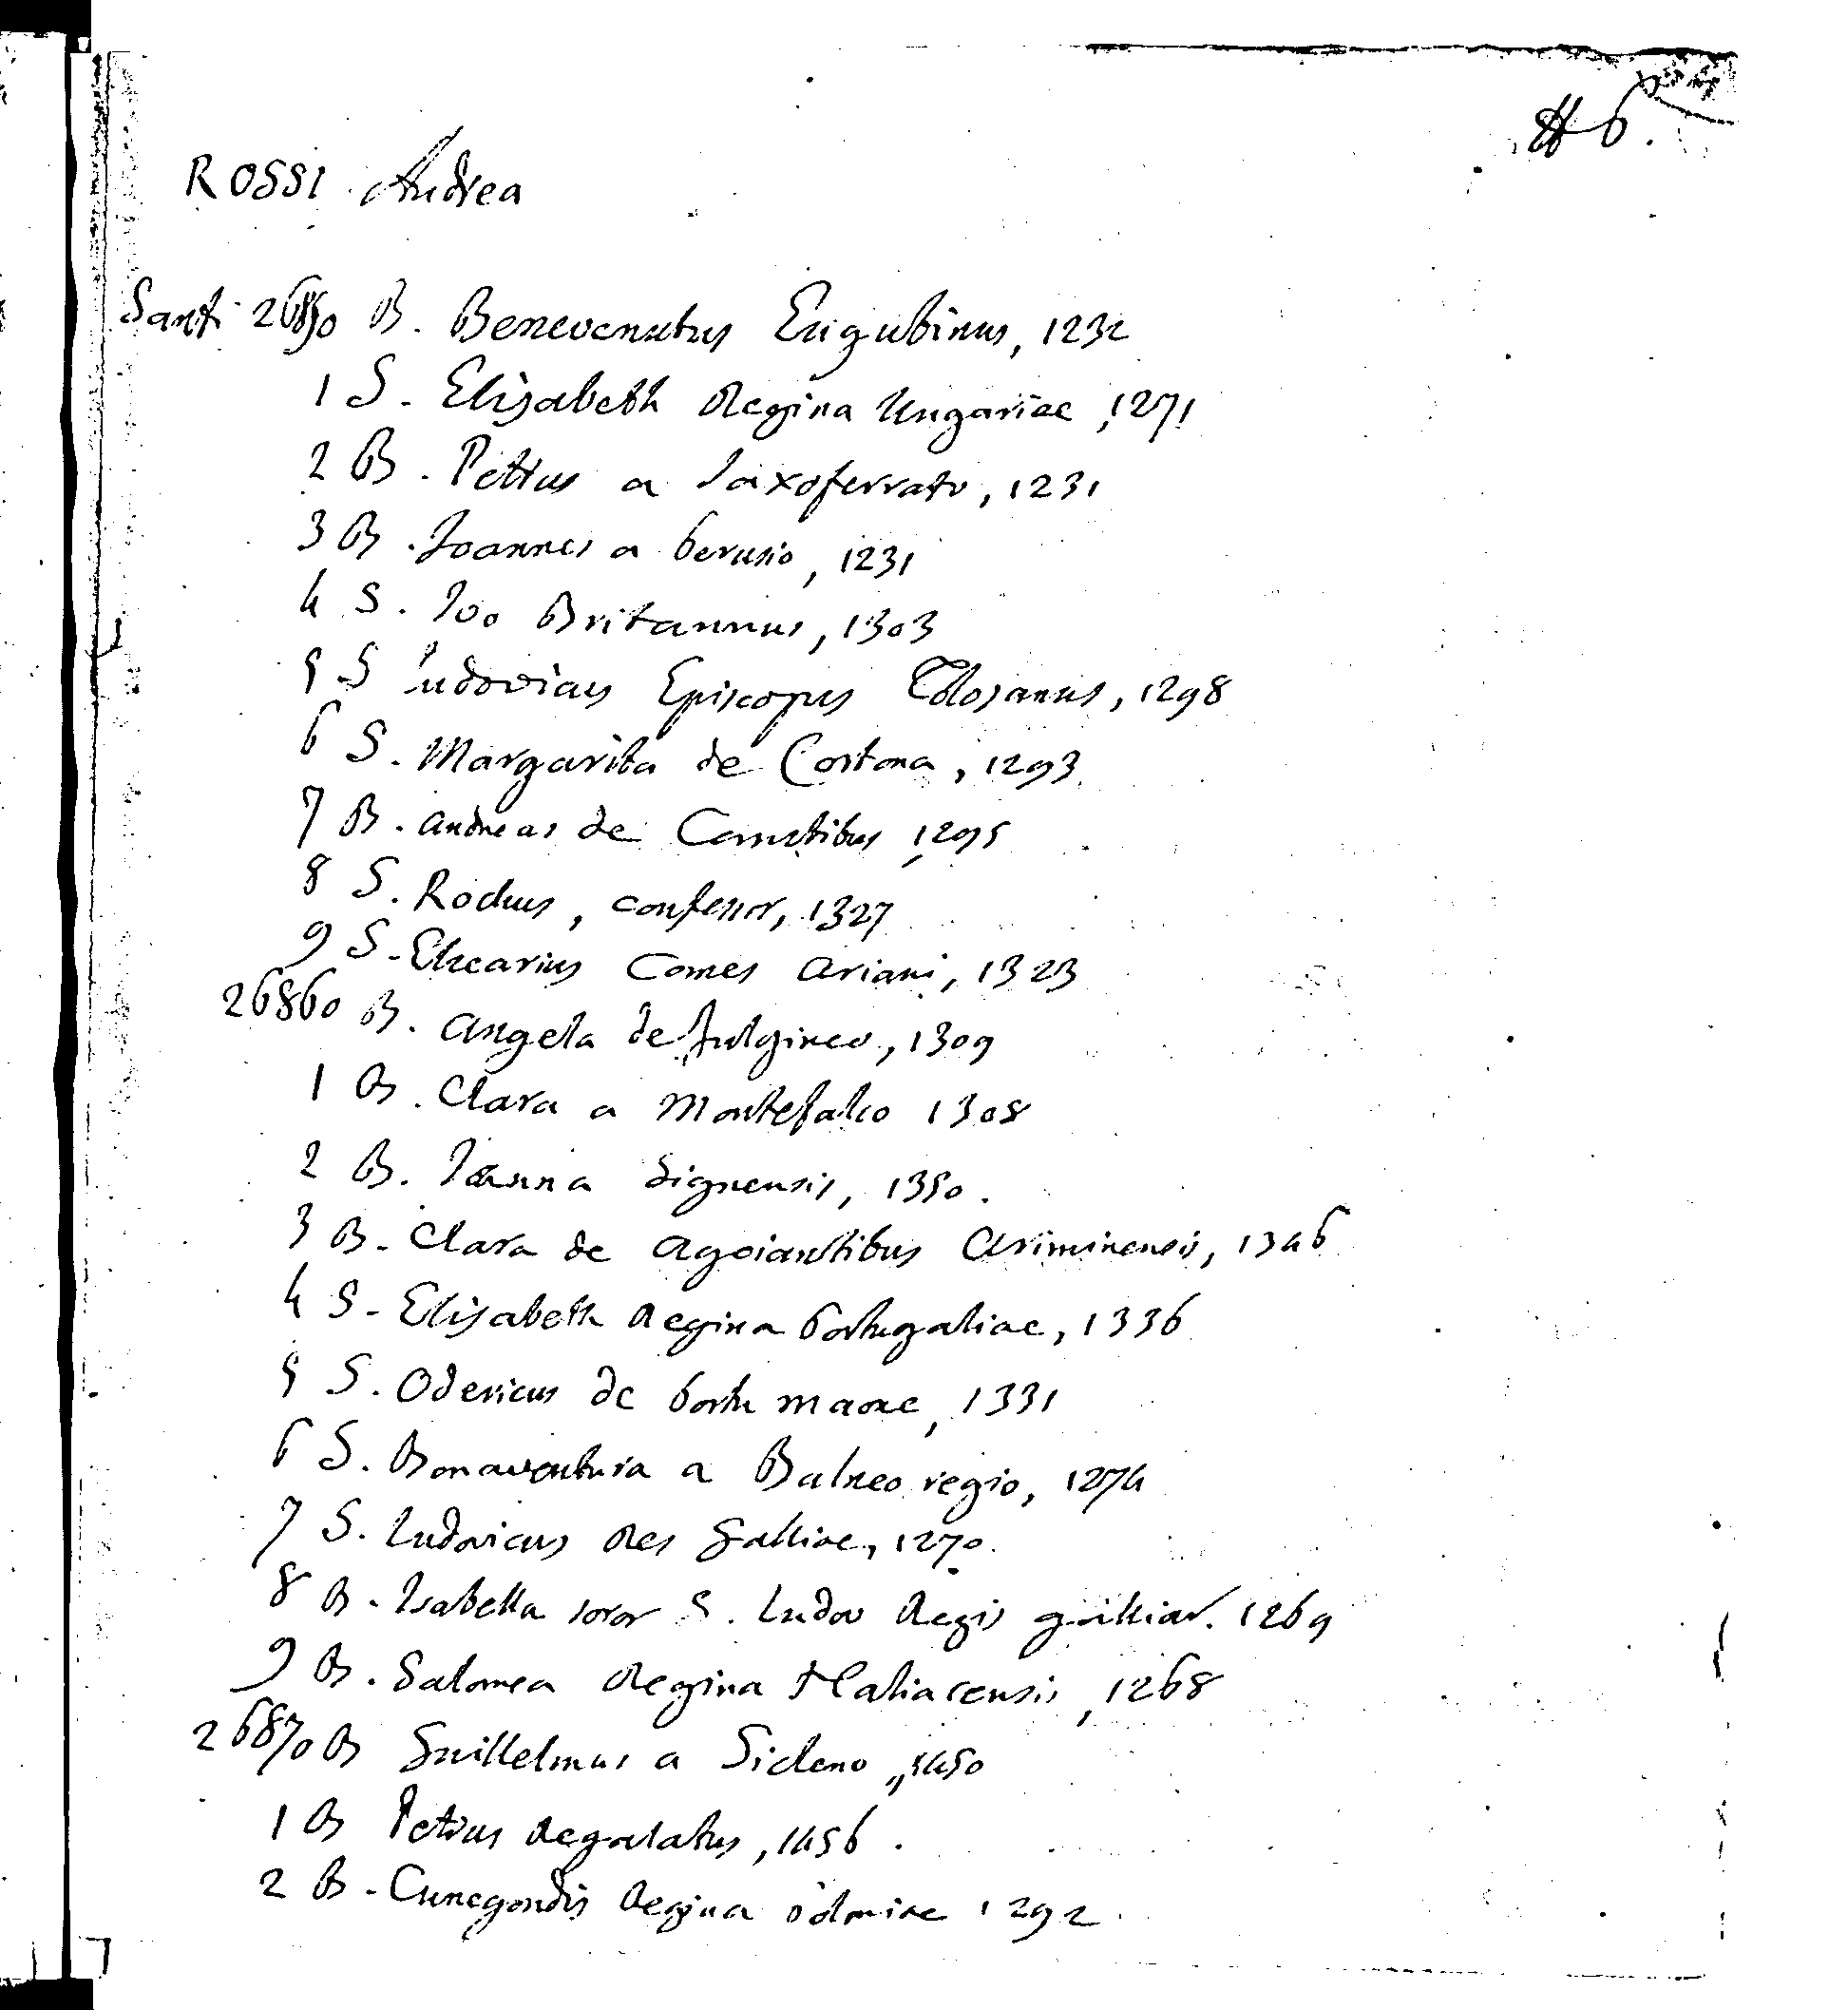 #6.
ROSSI Andrea
Santi 26850 B. Benevenutus Eugubinus, 1232
1 S. Elisabeth Regina Ungariae, 1271
2 B. Petrus a Saxoferrato, 1231
3 B. Joannes a Perusio, 1231
4 S. Ivo Britannus, 1303
5 S Ludovicus Episcopus Tolosanus, 1298
6 S. Margarita de Cortona, 1293
7 B. Andreas de Comitibus, 1295
8 S. Rochus, confessor, 1327
9 S. Elzearius Comes Ariani, 1323
26860 B. Angela de Fulgineo, 1309
1 B. Clara a Montefalco 1308
2 B. Joanna Signensis, 1350.
3 B. Clara de Agoiantibus Ariminensis, 1346
4 S. Elisabeth Regina Portugaliae, 1336
5 S. Odericus de Portu maone, 1331
6 S. Bonaventura a Balneo regio, 1274
7 S. Ludovicus Rex Galliae, 1270.
8 B. Isabella soror S. Ludov Regis galliar. 1269
9 B. Salomea Regina Haliacensis, 1268
26870 B Guillelmus a Sicleno, 1450
1 B Petrus Regalatus, 1456.
2 B. Cunegondis Regina Polmiae 1292